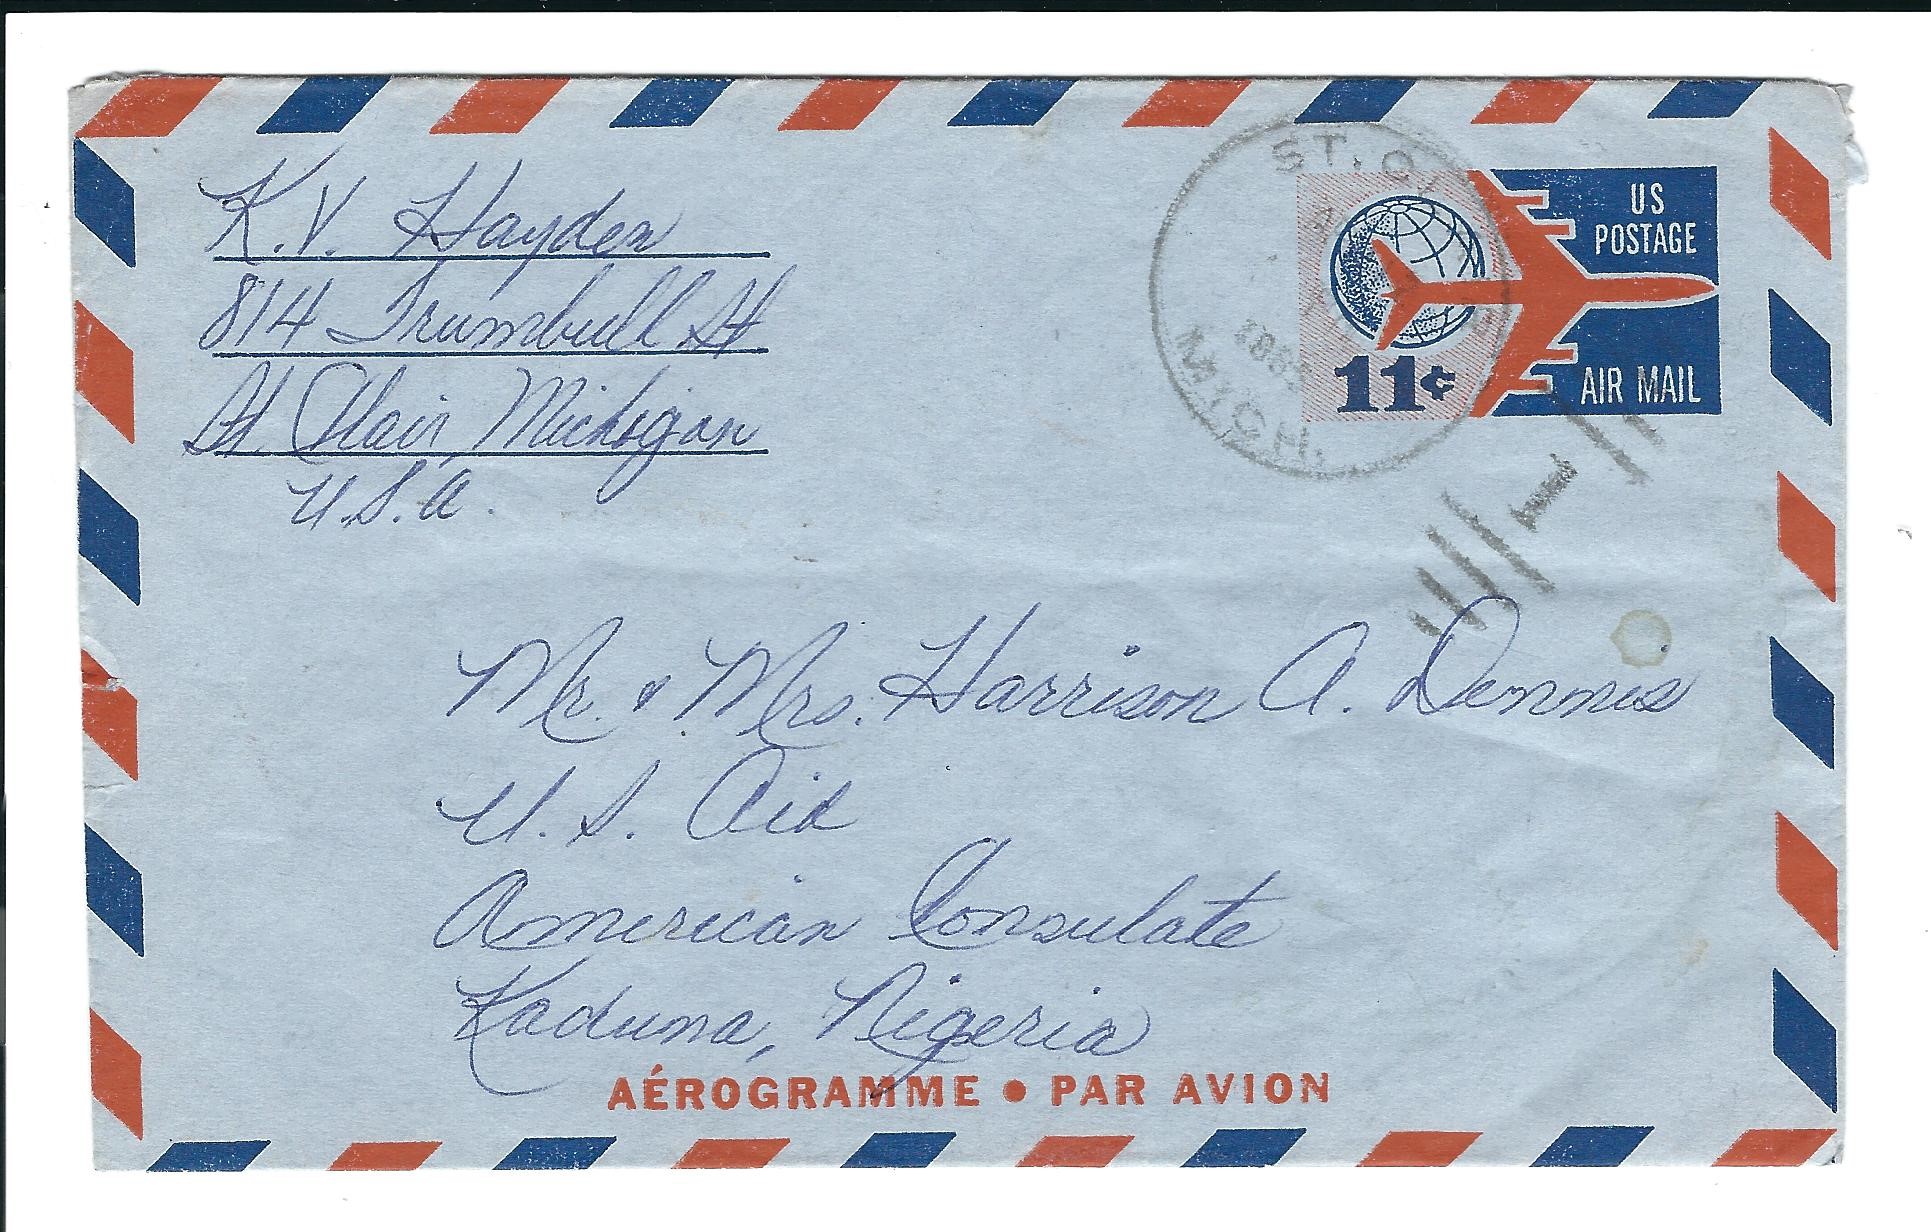 K.V. Hayden
814 Trumbull St
St. Clair, Michigan
U.S.A.
ST. CL
MICH.
US
POSTAGE
11¢
AIR MAIL
Mr. & Mrs. Harrison A. Dennis
U.S. Aid
American Consulate
Kaduna, Nigeria
AÉROGRAMME • PAR AVION